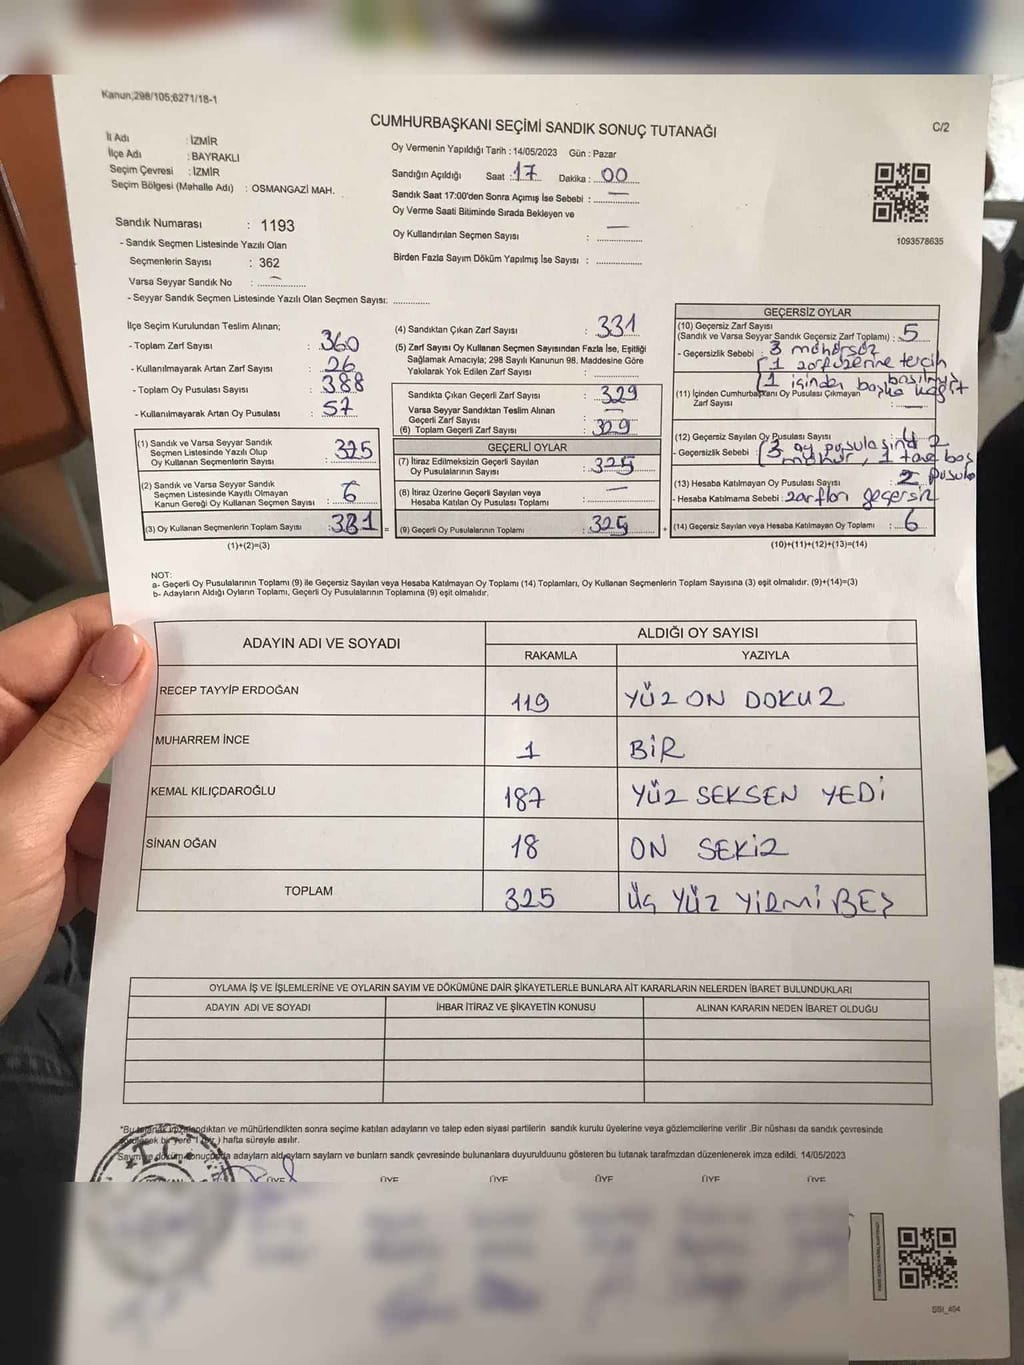 Kanun;298/105;6271/18-1
CUMHURBAŞKANI SEÇİMİ SANDIK SONUÇ TUTANAĞI
C/2
İl Adı : İZMİR
İlçe Adı : BAYRAKLI
Seçim Çevresi : İZMİR
Seçim Bölgesi (Mahalle Adı) : OSMANGAZİ MAH.
Sandık Numarası : 1193
- Sandık Seçmen Listesinde Yazılı Olan
Seçmenlerin Sayısı : 362
Varsa Seyyar Sandık No : —
- Seyyar Sandık Seçmen Listesinde Yazılı Olan Seçmen Sayısı:
Oy Vermenin Yapıldığı Tarih : 14/05/2023 Gün : Pazar
Sandığın Açıldığı Saat : 17 Dakika : 00
Sandık Saat 17:00'den Sonra Açımış İse Sebebi : —
Oy Verme Saati Bitiminde Sırada Bekleyen ve
Oy Kullandırılan Seçmen Sayısı : —
Birden Fazla Sayım Döküm Yapılmış İse Sayısı :
1093578635
İlçe Seçim Kurulundan Teslim Alınan;
- Toplam Zarf Sayısı : 360
- Kullanılmayarak Artan Zarf Sayısı : 26
- Toplam Oy Pusulası Sayısı : 388
- Kullanılmayarak Artan Oy Pusulası : 57
(1) Sandık ve Varsa Seyyar Sandık
Seçmen Listesinde Yazılı Olup
Oy Kullanan Seçmenlerin Sayısı : 325
(2) Sandık ve Varsa Seyyar Sandık
Seçmen Listesinde Kayıtlı Olmayan
Kanun Gereği Oy Kullanan Seçmen Sayısı : 6
(3) Oy Kullanan Seçmenlerin Toplam Sayısı : 331
(1)+(2)=(3)
(4) Sandıktan Çıkan Zarf Sayısı : 331
(5) Zarf Sayısı Oy Kullanan Seçmen Sayısından Fazla İse, Eşitliği
Sağlamak Amacıyla; 298 Sayılı Kanunun 98. Maddesine Göre
Yakılarak Yok Edilen Zarf Sayısı :
Sandıkta Çıkan Geçerli Zarf Sayısı : 329
Varsa Seyyar Sandıktan Teslim Alınan
Geçerli Zarf Sayısı : —
(6) Toplam Geçerli Zarf Sayısı : 329
GEÇERLİ OYLAR
(7) İtiraz Edilmeksizin Geçerli Sayılan
Oy Pusulasının Sayısı : 325
(8) İtiraz Üzerine Geçerli Sayılan veya
Hesaba Katılan Oy Pusulası Toplamı : —
(9) Geçerli Oy Pusulalarının Toplamı : 325
GEÇERSİZ OYLAR
(10) Geçersiz Zarf Sayısı
(Sandık ve Varsa Seyyar Sandık Geçersiz Zarf Toplamı) : 5
- Geçersizlik Sebebi : 3 mühürsüz
1 zarf üzerine tercih
1 içinden başka kağıt
(11) İçinden Cumhurbaşkanı Oy Pusulası Çıkmayan
Zarf Sayısı : —
(12) Geçersiz Sayılan Oy Pusulası Sayısı : 4
- Geçersizlik Sebebi : 3 oy pusulasında 2
mühür, 1 tane boş
pusula
(13) Hesaba Katılmayan Oy Pusulası Sayısı : 2
- Hesaba Katılmama Sebebi : zarfları geçersiz
(14) Geçersiz Sayılan veya Hesaba Katılmayan Oy Toplamı : 6
(10)+(11)+(12)+(13)=(14)
NOT:
a- Geçerli Oy Pusulalarının Toplamı (9) ile Geçersiz Sayılan veya Hesaba Katılmayan Oy Toplamı (14) Toplamları, Oy Kullanan Seçmenlerin Toplam Sayısına (3) eşit olmalıdır. (9)+(14)=(3)
b- Adayların Aldığı Oyların Toplamı, Geçerli Oy Pusulalarının Toplamına (9) eşit olmalıdır.
ADAYIN ADI VE SOYADI
ALDIĞI OY SAYISI
RAKAMLA YAZIYLA
RECEP TAYYİP ERDOĞAN 119 YÜZ ON DOKUZ
MUHARREM İNCE 1 BİR
KEMAL KILIÇDAROĞLU 187 YÜZ SEKSEN YEDİ
SİNAN OĞAN 18 ON SEKİZ
TOPLAM 325 ÜÇ YÜZ YİRMİ BEŞ
OYLAMA İŞ VE İŞLEMLERİNE VE OYLARIN SAYIM VE DÖKÜMÜNE DAİR ŞİKAYETLERLE BUNLARA AİT KARARLARIN NELERDEN İBARET BULUNDUKLARI
ADAYIN ADI VE SOYADI İHBAR İTİRAZ VE ŞİKAYETİN KONUSU ALINAN KARARIN NEDEN İBARET OLDUĞU
*Bu tutanak imzalandıktan ve mühürlendikten sonra seçime katılan adayların ve talep eden siyasi partilerin sandık kurulu üyelerine veya gözlemcilerine verilir .Bir nüshası da sandık çevresinde
bir yere 1 (bir ) hafta süreyle asılır.
adayların sayları ve bunların sandk çevresinde bulunanlara duyurulduunu gösteren bu tutanak tarafmzdan düzenlenerek imza edildi. 14/05/2023
T.C.
ÜYE ÜYE ÜYE ÜYE ÜYE ÜYE